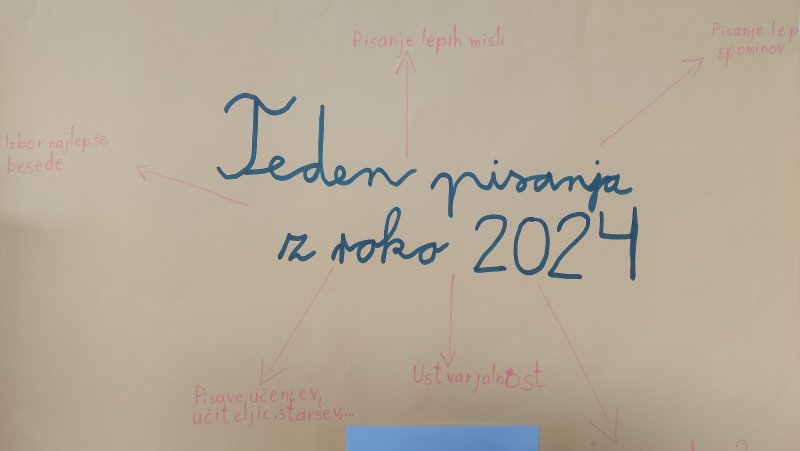 Pisanje lepih misli
Pisanje lep
spominov
Izbor najlepše
besede
Teden pisanja
z roko 2024
Pisave učencev,
učiteljic, staršev,...
Ustvarjalnost